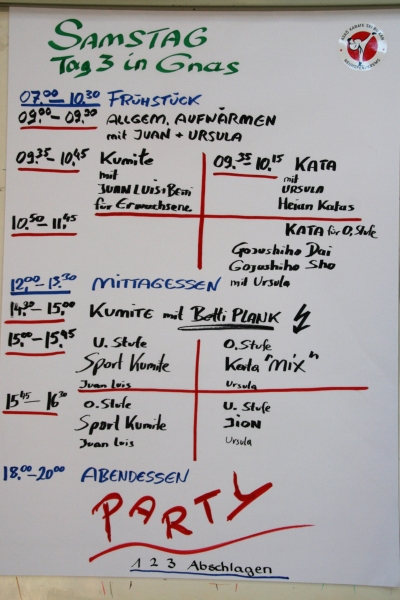 SAMSTAG
Tag 3 in Gnas
07.00 – 10.30 FRÜHSTÜCK
09.00 – 09.30 ALLGEM. AUFWÄRMEN
mit JUAN + URSULA
09.35 – 10.45 Kumite
mit
JUAN LUIS + Betti
für Erwachsene
09.35 – 10.15 KATA
mit
URSULA
Heian Katas
10.50 – 11.45
KATA für O. Stufe
Gojushiho Dai
Gojushiho Sho
mit Ursula
12.00 – 13.30 MITTAGESSEN
14.30 – 15.00 KUMITE mit Betti PLANK
15.00 – 15.45
U. Stufe
Sport Kumite
Juan Luis
O. Stufe
Kata "MIX"
Ursula
15.45 – 16.30
O. Stufe
Sport Kumite
Juan Luis
U. Stufe
JION
Ursula
18.00 – 20.00 ABENDESSEN
PARTY
1 2 3 Abschlagen